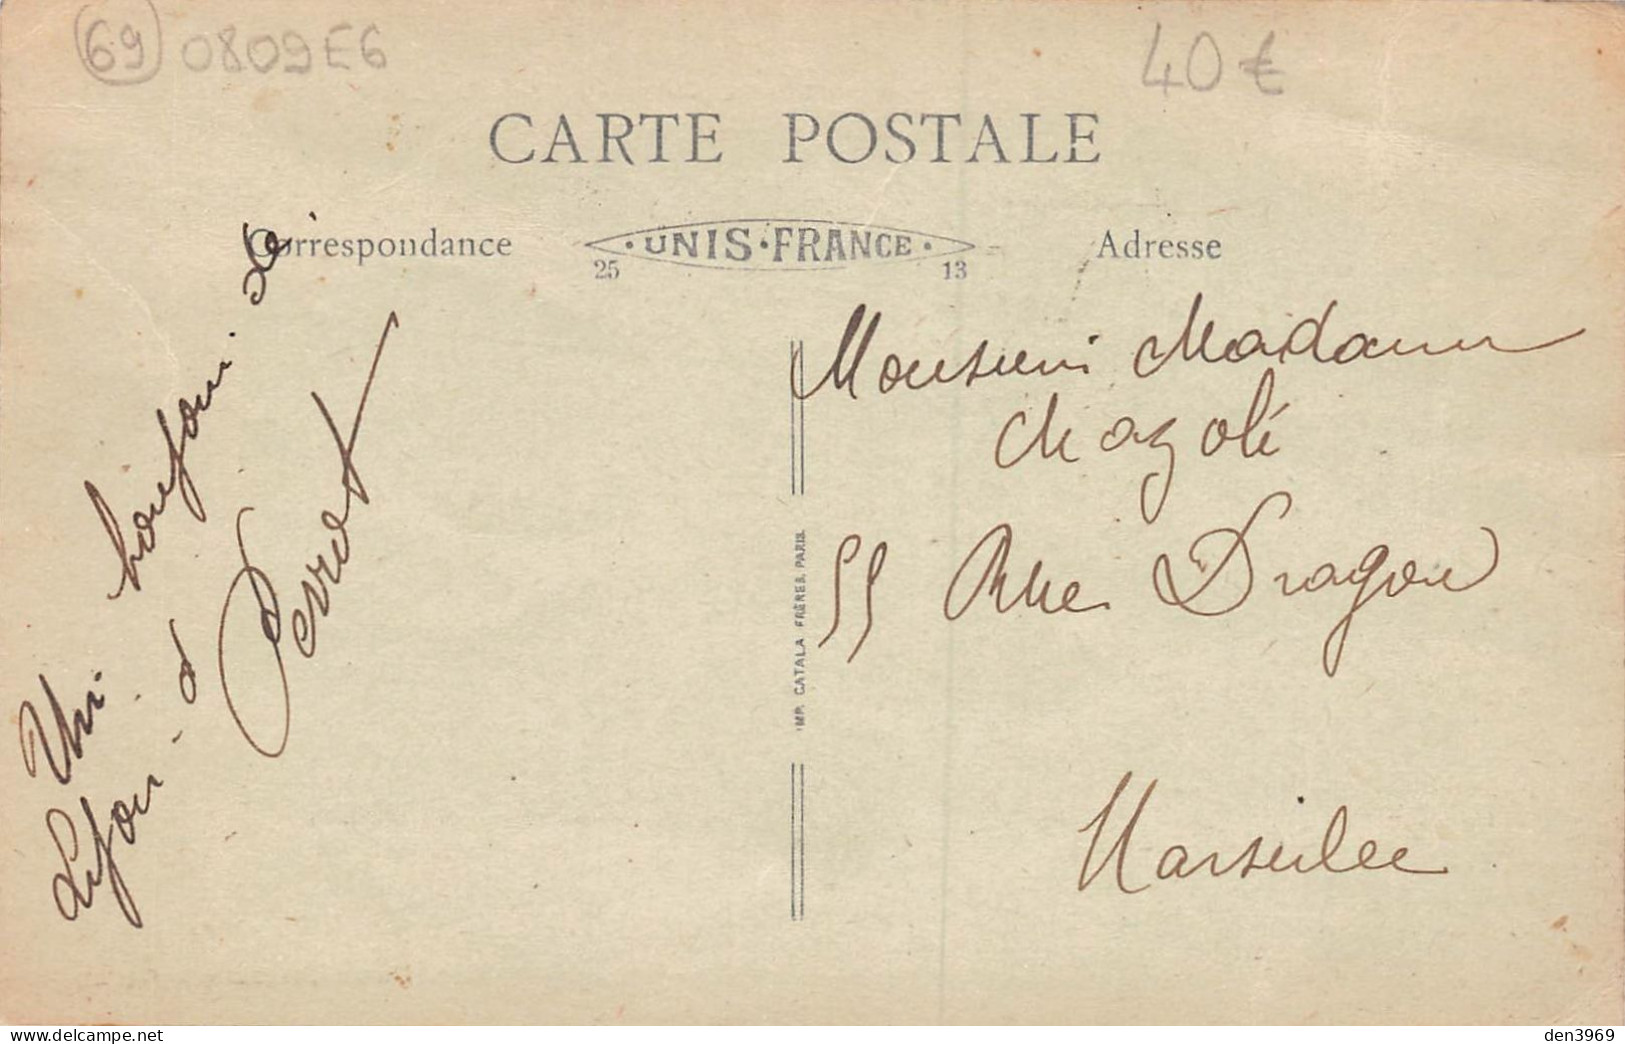 69 0809E6
40 €
CARTE POSTALE
Correspondance
UNIS-FRANCE
25 13
Adresse
Un bonjour de
Lyon - d
Perret
Monsieur Madame
Chazolé
55 Rue Dragon
Marseille
IMP. CATALA FRÈRES, PARIS
www.delcampe.net
den3969